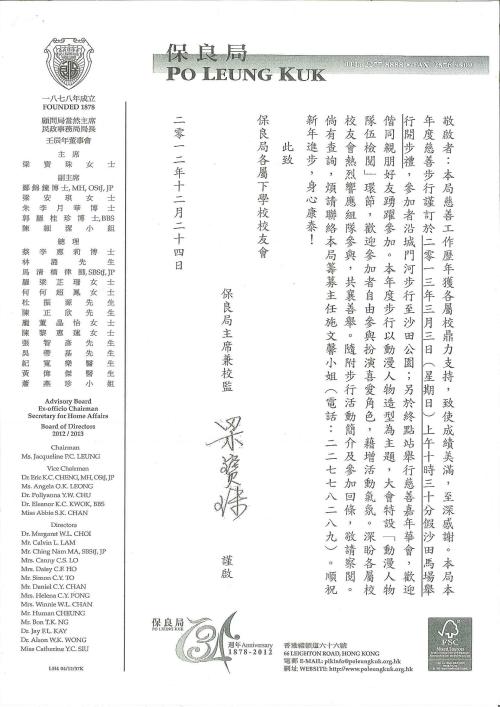 保良局
PO LEUNG KUK
一八七八年成立
FOUNDED 1878
顧問局當然主席
民政事務局局長
壬辰年董事會
主席
梁寶珠女士
副主席
鄭錦鐘博士, MH, OStJ, JP
梁安琪女士
朱李月華博士
郭羅桂珍博士, BBS
陳細潔小姐
總理
蔡李惠莉博士
林潞先生
馬清楠律師, SBStJ, JP
羅梁芷珊女士
何何超鳳女士
杜振源先生
陳正欣先生
龐董晶怡女士
陳黎惠蓮女士
張智彥先生
吳帶基先生
紀寬樂醫生
黃偉傑醫生
蕭燕珍小姐
Advisory Board
Ex-officio Chairman
Secretary for Home Affairs
Board of Directors
2012 / 2013
Chairman
Ms. Jacqueline P.C. LEUNG
Vice Chairmen
Dr. Eric K.C. CHENG, MH, OStJ, JP
Ms. Angela O.K. LEONG
Dr. Pollyanna Y.W. CHU
Dr. Eleanor K.C. KWOK, BBS
Miss Abbie S.K. CHAN
Directors
Dr. Margaret W.L. CHOI
Mr. Calvin L. LAM
Mr. Ching Nam MA, SBStJ, JP
Mrs. Canny C.S. LO
Mrs. Daisy C.F. HO
Mr. Simon C.Y. TO
Mr. Daniel C.Y. CHAN
Mrs. Helena C.Y. FONG
Mrs. Winnie W.L. CHAN
Mr. Human CHEUNG
Mr. Bon T.K. NG
Dr. Jay F.L. KAY
Dr. Alson W.K. WONG
Miss Catherine Y.C. SIU
LH4 04/12/37K
敬啟者：本局慈善工作歷年獲各屬校鼎力支持，致使成績美滿，至深感謝。本局本
年度慈善步行謹訂於二零一三年三月三日（星期日）上午十時三十分假沙田馬場舉
行開步禮，參加者沿城門河步行至沙田公園；另於終點站舉行慈善嘉年華會，歡迎
偕同親朋好友踴躍參加。本年度步行以動漫人物造型為主題，大會特設「動漫人物
隊伍檢閱」環節，歡迎參加者自由參與扮演喜愛角色，藉增活動氣氛。深盼各屬校
校友會熱烈響應組隊參與，共襄善舉。隨附步行活動簡介及參加回條，敬請察閱。
倘有查詢，煩請聯絡本局籌募主任施文馨小姐（電話：二二七七八二八九）。順祝
新年進步，身心康泰！
此致
保良局各屬下學校校友會
保良局主席兼校監
梁寶珠
謹啟
二零一二年十二月二十四日
保良局
PO LEUNG KUK
134
週年Anniversary
1878-2012
香港禮頓道六十六號
66 LEIGHTON ROAD, HONG KONG
電郵 E-MAIL: plkinfo@poleungkuk.org.hk
網址 WEBSITE: http://www.poleungkuk.org.hk
FSC
Mixed Sources